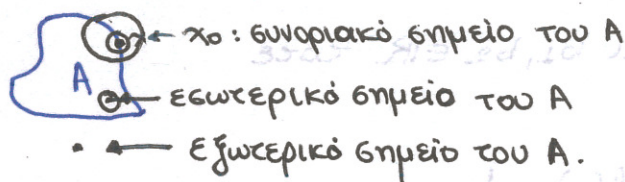 x₀ : συνοριακό σημείο του Α
A
εσωτερικό σημείο του Α
εξωτερικό σημείο του Α.